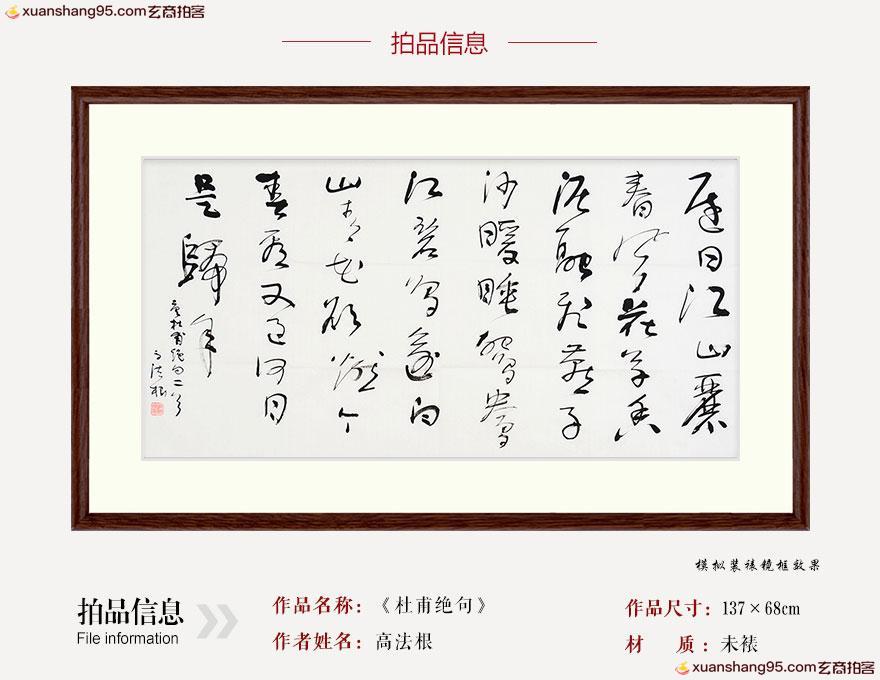 xuanshang95.com玄商拍客
拍品信息
遲日江山麗
春風花草香
泥融飛燕子
沙暖睡鴛鴦
江碧鳥逾白
山青花欲燃今
春看又過何日
是歸年
杜甫絕句二首
高法根
模拟装裱镜框效果
拍品信息
File information
作品名称:《杜甫绝句》
作者姓名:高法根
作品尺寸:137×68cm
材 质:未裱
xuanshang95.com玄商拍客